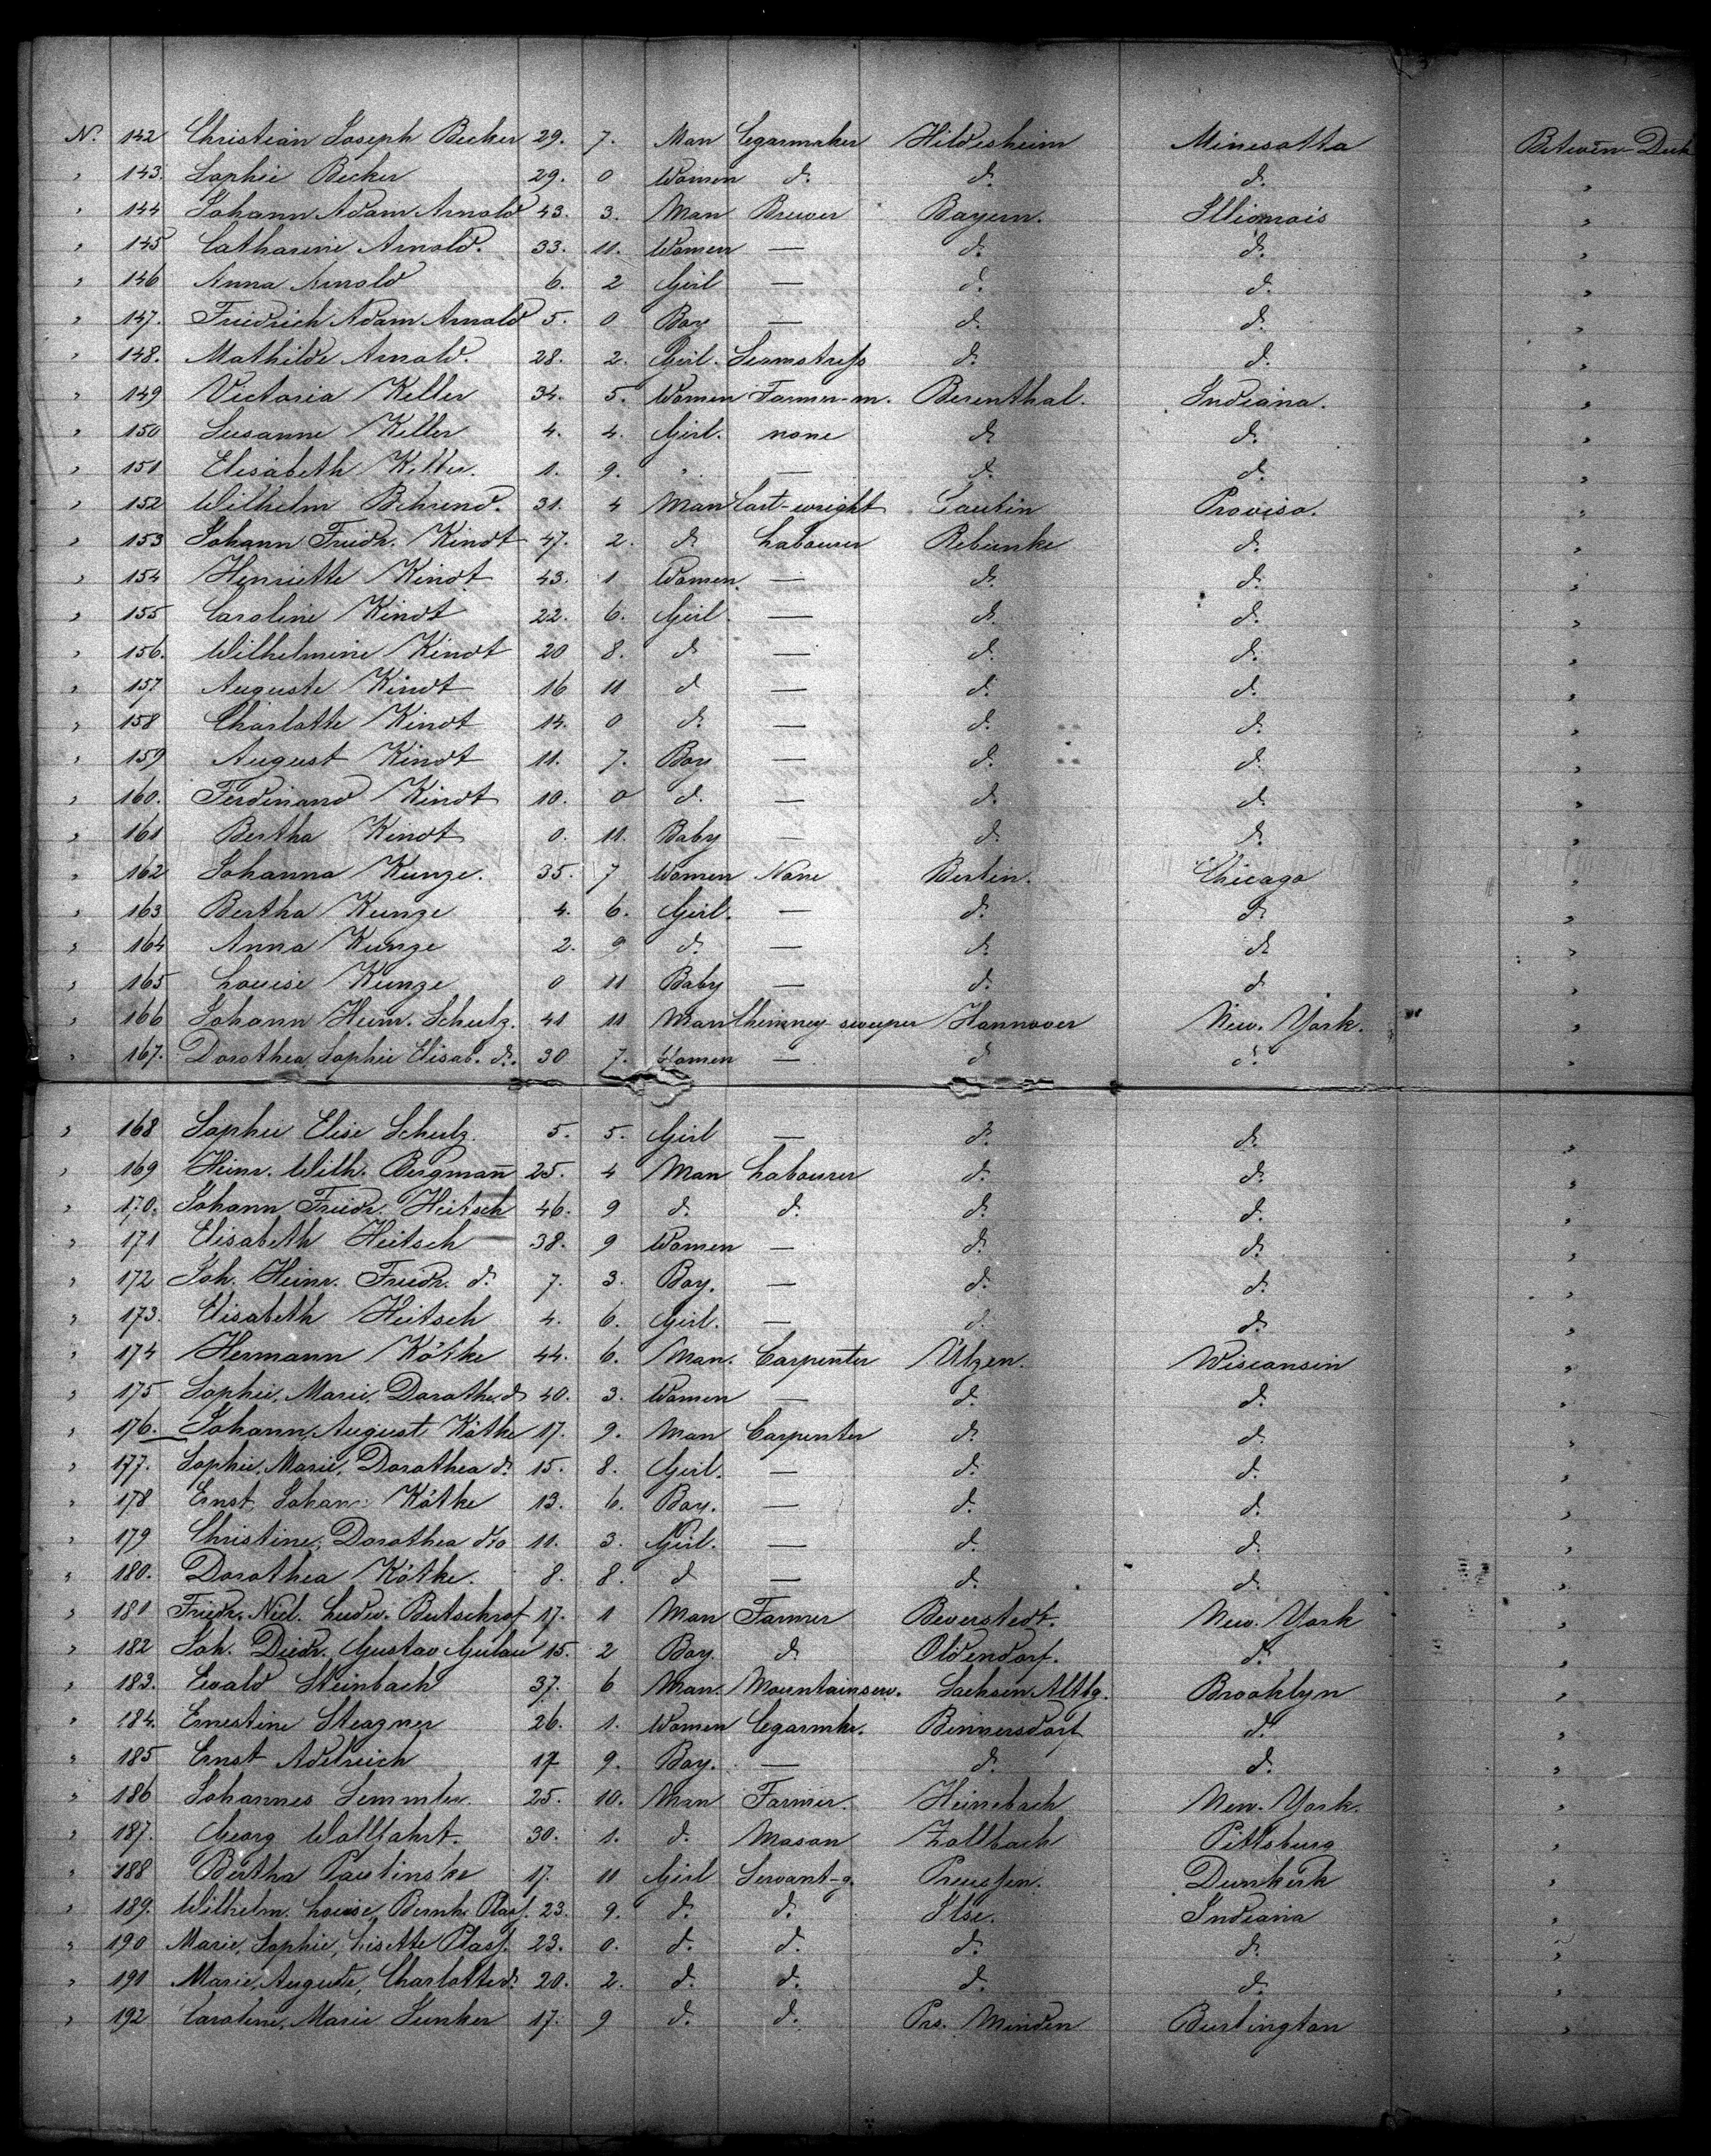 N. 142 Christian Joseph Becker 29. 7. Man Cegarmaker Hildesheim Minesotta Between Deck
" 143. Sophie Becker 29. 0 Women d. d. d. "
" 144 Johann Adam Arnold 43. 3. Man Brewer Bayern. Illionois "
" 145 Catharine Arnold. 33. 11. Women — d. d. "
" 146 Anna Arnold 6. 2 Girl — d. d. "
" 147. Friedrich Adam Arnold 5. 0 Boy — d. d. "
" 148. Mathilde Arnold. 28. 2. Girl. Seamstress d. d. "
" 149 Victoria Keller 34. 5. Women Farmer-m. Berenthal. Indiana. "
" 150 Susanne Keller 4. 4. Girl. none d. d. "
" 151 Elisabeth Keller. 1. 9. " — d. d. "
" 152 Wilhelm Behrend. 31. 4 Man Cart-wright Gautin Proviso. "
" 153 Johann Friedr. Kindt 47. 2. d. Labourer Ribunke d. "
" 154 Henriette Kindt 43. 1 Women — d. d. "
" 155 Caroline Kindt 22. 6. Girl. — d. d. "
" 156. Wilhelmine Kindt 20 8. d — d. d. "
" 157 Auguste Kindt 16 11 d — d. d. "
" 158 Charlotte Kindt 14. 0 d. — d. d. "
" 159 August Kindt 11. 7. Boy — d. d. "
" 160. Ferdinand Kindt 10. 0 d. — d. d. "
" 161 Bertha Kindt 0. 11. Baby — d. d. "
" 162 Johanna Kunze. 35. 7 Women None Berlin. Chicago "
" 163 Bertha Kunze 4. 6. Girl. — d. d. "
" 164 Anna Kunze 2. 9 d. — d. d. "
" 165 Louise Kunze 0 11 Baby — d. d. "
" 166 Johann Heinr. Schulz. 41 11 Man Chimney sweeper Hannover New. York. "
" 167. Dorothea Sophie Elisab. d. 30 7. Women — d d. "
" 168 Sophie Elise Schulz. 5. 5. Girl — d. d. "
" 169 Heinr. Wilh. Bergmann 25. 4 Man Labourer d. d. "
" 170. Johann Friedr. Heitsch 46. 9 d. d. d. d. "
" 171 Elisabeth Heitsch 38. 9 Women — d. d. "
" 172 Joh. Heinr. Friedr. d. 7. 3. Boy. — d. d. "
" 173. Elisabeth Heitsch 4. 6. Girl. — d. d. "
" 174 Hermann Kötke 44. 6. Man. Carpenter Ulzen. Wisconsin "
" 175 Sophie, Marie, Dorothe. d. 40. 3. Women — d. d. "
" 176. Johann, August Kötke 17. 9. Man Carpenter d. d. "
" 177. Sophie, Marie, Dorothea d. 15. 8. Girl. — d. d. "
" 178 Ernst Johan: Kötke 13. 6. Boy. — d. d. "
" 179 Christine, Dorothea dto 11. 3. Girl. — d. d. "
" 180. Dorothea Kötke. 8. 8. d — d. d. "
" 181 Friedr. Nicl. Ludw. Butschrof 17. 1 Man Farmer Beverstedt. New. York "
" 182 Joh. Diedr. Gustav 15. 2 Boy. d. Oldendorf. d. "
" 183. Ewald Steinbach 37. 6 Man. Mountainsew. Sachsen Altbg. Brooklyn "
" 184. Ernestine Steazner 26. 1. Women Cegarmkr. Binnersdorf d. "
" 185 Ernst Adelreich 17 9. Boy. — d. d. "
" 186 Johannes Semmler. 25. 10. Man Farmer. Heinebach New. York. "
" 187. Georg Wollfahrt. 30. 1. d. Mason Zollbach Pittsburg "
" 188 Bertha Paulinske 17. 11 Girl Servant-g. Preussen. Dunkirk "
" 189. Wilhelm. Louise, Bernh. Plass. 23. 9. d. d. Ilse. Indiana "
" 190 Marie, Sophie, Lisette Plass. 23. 0. d. d. d. d. "
" 191 Marie, Auguste, Charlotte d. 20. 2. d. d. d. d. "
" 192 Caroline, Marie Sunker 17. 9 d. d. Prs. Minden Burlington "